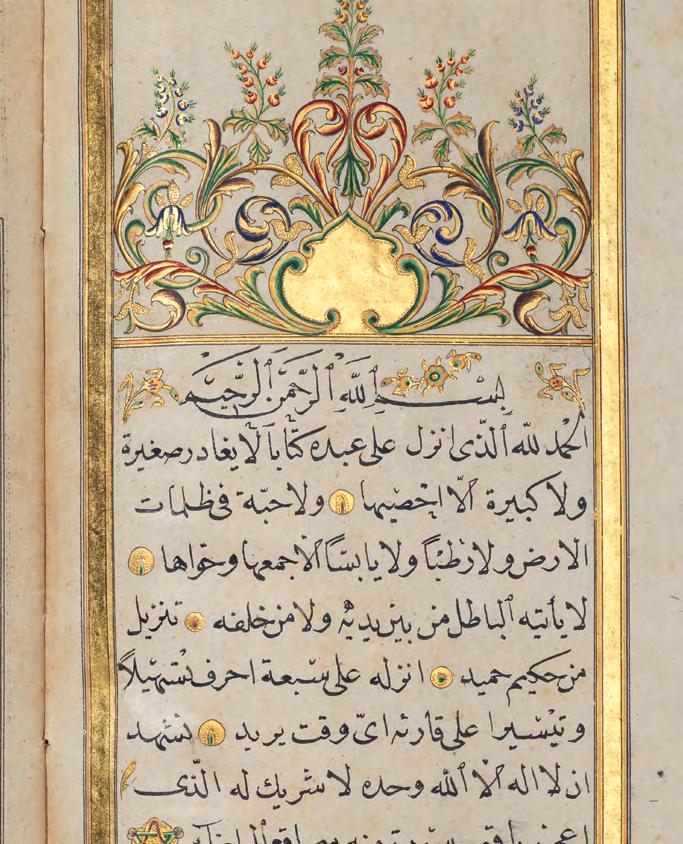 بسم الله الرحمن الرحيم
الحمد لله الذى انزل على عبده كتابا لا يغادر صغيرة
ولا كبيرة الا احصيها ولا حبة فى ظلمات
الارض ولا رطبا ولا يابسا الا جمعها وحواها
لا يأتيه الباطل من بين يديه ولا من خلفه تنزيل
من حكيم حميد انزله على سبعة احرف تسهيلا
وتيسيرا على قارئه اى وقت يريد نشهد
ان لا اله الا الله وحده لا شريك له الذى